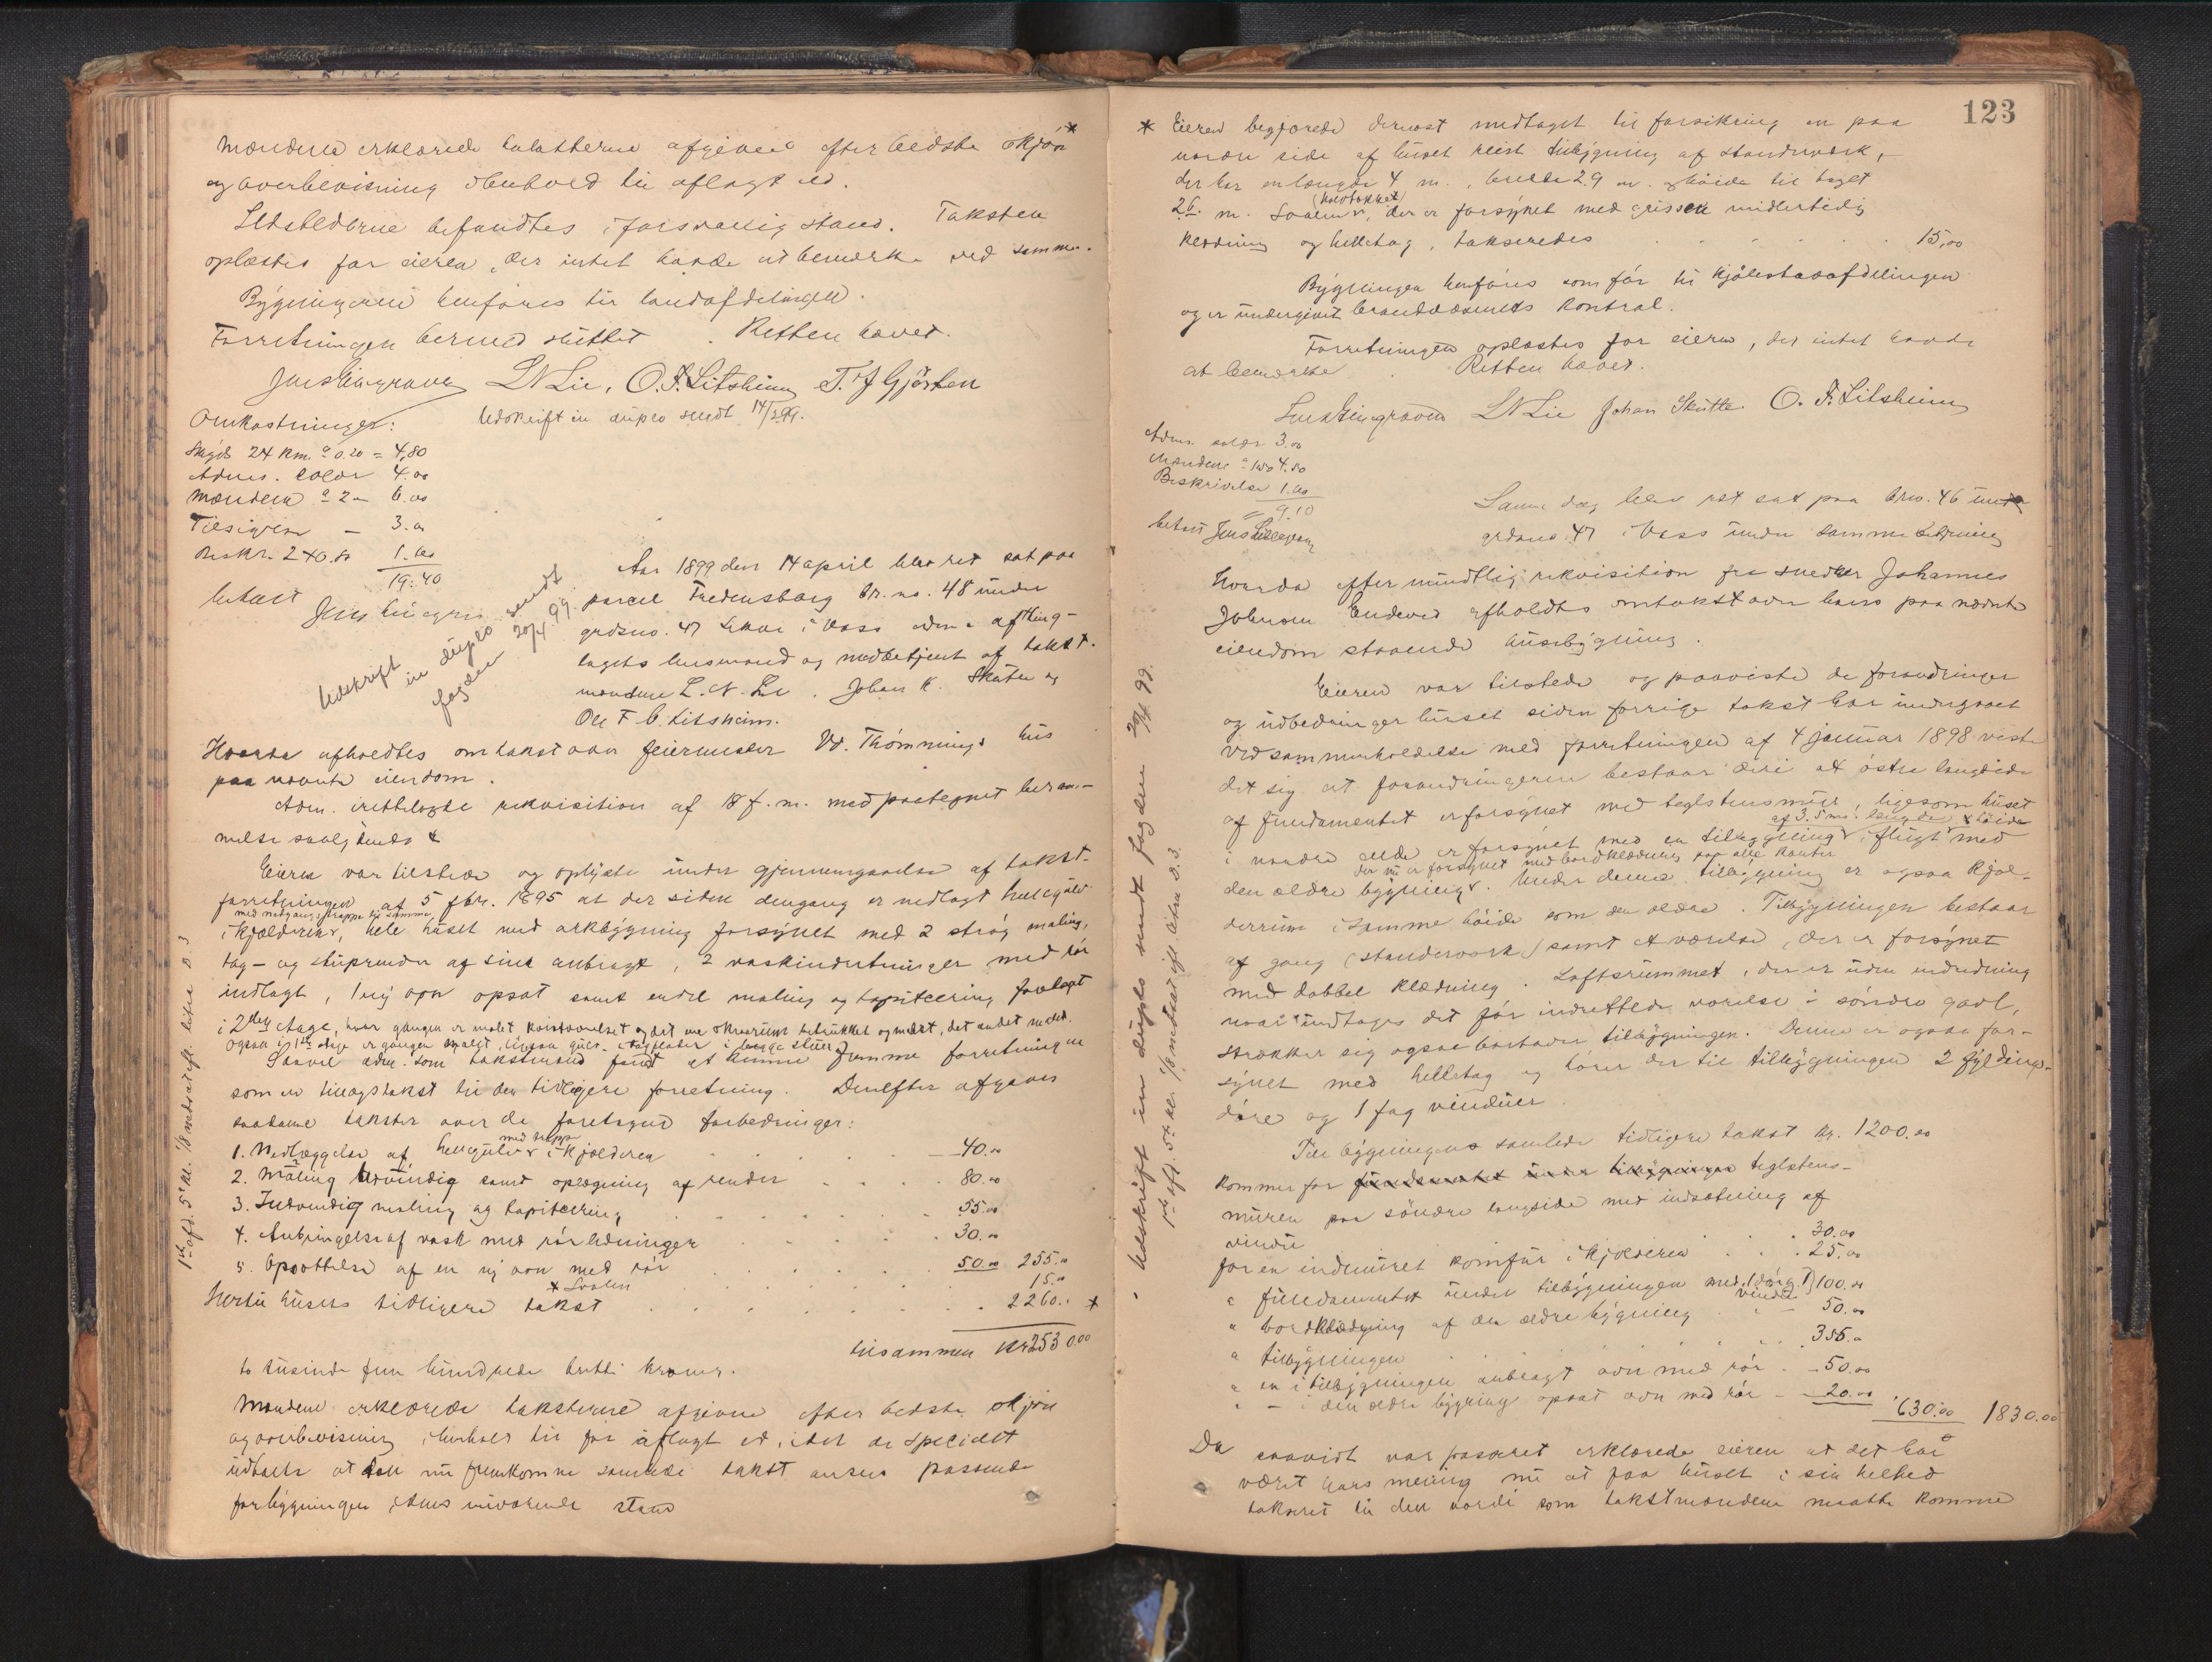 Mændene erklærede taksterne afgivne efter bedste skjøn *
og overbevisning i henhold til aflagt ed.
Ildstederne befandtes i forsvarlig stand. Taksten
oplæstes for eieren, der intet havde at bemerke ved samme.
Bygningerne henføres til landafdelingen.
Forretningen dermed sluttet. Retten hævet.
LNLie, O.F.Litsheim, T. Gjørsten
Omkostninger:
Udskrift in duplo sendt 14/2 99.
Skyds 24 Km. a 0.20 = 4,80
Adms. salær 4.00
Mændene a 2 – 6.00
Tilsigelse – 3.00
Beskr. 2 x 0.80 1.60
19.40
betalt
Udskrift in duplo sendt
fogden 20/4 99.
Aar 1899 den 14 april blev ret sat paa
parcel Fredensborg br. no. 48 under
grdsno. 47 i Voss af thing-
lagets lensmand og medbetjent af takst-
mændene L. N. Lie, Johan K. Skutle og
Ole F. O. Litsheim.
Hvorda afholdtes omtakst over feiermester Vd. Thømmings hus
paa nævnte eiendom.
Adm. irettelagde rekvisition af 18 f. m. med paategnet beram-
melse saalydende
Eieren var tilstede og oplyste under gjennemgaaelse af takst-
forretningen af 5 fbr. 1895 at der siden dengang er nedlagt hellegulv
med nedgangstrappe til samme
i kjælderen, hele huset med arkbygning forsynet med 2 strøg maling,
tag- og stuprender af sink anbragt, 2 vaskindretninger med rør
indlagt, 1 ny ovn opsat samt endel maling og tapitsering foretagt
i 2den etage, hvor gangen er malet
Saavel adm. som takstmænd fandt at kunne fremme forretningen
som en tillægstakst til den tidligere forretning. Derefter afgaves
saadanne takster over de foretagne forbedringer:
med trappe
1. Nedlæggelse af hellegulv i kjælderen 40.00
2. Maling udvendig samt oplægning af render 80.00
3. Indvendig maling og tapitsering 55.00
4. Anbringelse af vask med rørledninger 30.00
5. Opsættelse af en ny ovn med rør 50.00 255.00
* Svalen 15.00
Hertil husets tidligere takst 2260.00 *
tilsammen Kr 2530.00
to tusinde fem hundrede tretti kroner.
Mændene erklærede taksterne afgivne efter bedste skjøn
og overbevisning i henhold til før aflagt ed, idet de specielt
udtalte at den nu fremkomne samlede takst ansees passende
for bygningen i dens nuværende stand
1ste afd. 5te kl. 1/8 med satsift. litra D 3
123
* Eieren begjærede dernæst medtaget til forsikring en paa
nordre side af huset reist tilbygning af standerverk,
der har en længde 4 m., bredde 2.9 m. og høide til taget
(halvtækket)
2.6. m. Svalen, der er forsynet med grissen midlertidig
klædning og helletag, takseredes 15,00
Bygningen henføres som før til Kjøbstadafdelingen
og er undergivet brandvæsenets kontrol.
Forretningen oplæstes for eieren, der intet havde
at bemerke. Retten hævet.
LNLie Johan Skutle. O. F. Litsheim
Adms. salær 3.00
Mændene a 1.50 4.50
Beskrivelse 1.60
= 9.10
betalt
Samme dag blev ret sat paa brno. 46 under
grdsno. 47 i Voss under samme betjening
Hvorda efter mundtlig rekvisition fra snedker Johannes
Johnsen Endeved afholdtes omtakst over hans paa nævnte
eiendom staaende husebygning.
Eieren var tilstede og paaviste de forandringer
og udbedringer huset siden forrige takst har undergaaet
ved sammenholdelse med forretningen af 4 januar 1898 viste
det sig at forandringerne bestaar deri at østre langside
af fundamentet er forsynet med teglstensmur, ligesom huset
af 3.5 m. længde & høide
i nordre ende er forsynet med en tilbygning i flugt med
der nu er forsynet med bordklædning paa alle kanter
den ældre bygning. Under denne tilbygning er ogsaa kjæl-
derrum i samme høide som den ældre. Tilbygningen bestaar
af gang (standerverk) samt et værelse, der er forsynet
med dobbel klædning. Loftsrummet, der er uden indredning
naar undtages det før indrettede værelse i søndre gavl,
strækker sig ogsaa bortover tilbygningen. Denne er ogsaa for-
synet med helletag og hører der til tilbygningen 2 fyldings-
døre og 1 fag vinduer.
Til bygningens samlede tidligere takst kr. 1200.00
kommer for fundamentet under tilbygningen teglstens-
muren paa søndre langside med indsætning af
vindu 30.00
for en indmuret komfur i kjælderen 25.00
" fundamentet under tilbygningen med (1 dør og 1 vindu) 100.00
" bordklædning af den ældre bygning 50.00
" tilbygningen 355.00
" en i tilbygningen anbragt ovn med rør 50.00
" – i den ældre bygning opsat ovn med rør 20.00 630.00 1830.00
Da saavidt var passeret erklærede eieren at det har
været hans mening nu at faa huset i sin helhed
takseret til den værdi som takstmændene maatte komme
Udskrift in duplo sendt fogden 20/4 99.
1ste afd. 5te kl. 1/8 med satsift. litra D. 3.